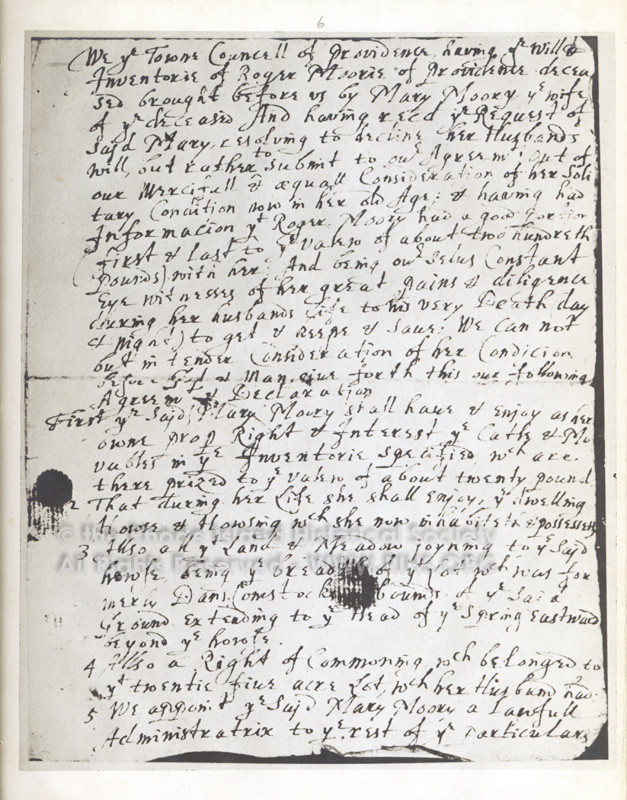 6
We yᵉ Towne Councell of Providence having yᵉ Will &
Inventorie of Roger Moorie of Providence decea
sed brought before vs by Mary Moory yᵉ wife
of yᵉ deceased And having recd yᵉ Request of
said Mary, resolving to decline her Husbands
will, but rather to Submit to ouʳ Agreemᵗ out of
our Mercifull & æquall Consideration of her Soli
tary Condition now in her old Age: & having had
Informacion yᵗ Roger Moory had a good portion
(First & Last to yᵉ valew of about two hundreth
Pounds) with her: And being ouʳ Selus Constant
Eye witnesses of her great pains & diligence
during her husbands Life to his very Death day
& night) to get & keepe & save: We can not
but in tender Consideration of her Condicion
before God & Man give forth this our following
Agreemᵗ & Declaration
First yᵉ Said Mary Moory shall have & Enjoy as her
owne prop Right & Interest yᵉ Catle & Mo
vables in yᵉ Inventorie specified wᶜʰ are
there prized to yᵉ valew of about twenty pound
2 That during her Life she shall enjoy, yᵉ dwelling
howse & Howsing wᶜʰ she now inhabiteth & possesseth
3 Also all yᵉ Land & Meadow joyning to yᵉ Said
howse being yᵉ bread of yᵉ Lot wᶜʰ was for
merly Dan: Comstock bounds of yᵉ Said
Ground Extending to yᵉ Head of yᵉ Spring Eastward
beyond yᵉ howse
4 Also a Right of Commoning wᶜʰ belonged to
yᵗ twentie five acre Lot, wᶜʰ her Husband had.
5 We appoint yᵉ Said Mary Moory a Lawfull
Administratrix to yᵉ rest of yᵉ particulars
© the Rhode Island Historical Society
All Rights Reserved